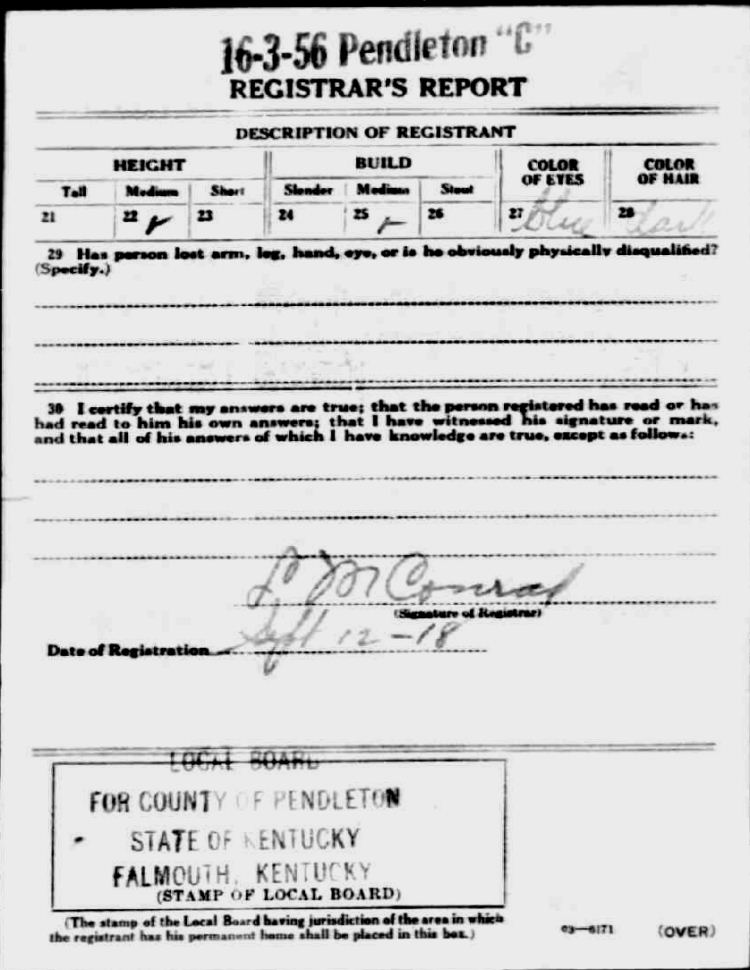 16-3-56 Pendleton "C"
REGISTRAR'S REPORT
DESCRIPTION OF REGISTRANT
HEIGHT BUILD COLOR OF EYES COLOR OF HAIR
Tall Medium Short Slender Medium Stout
21 22 ✓ 23 24 25 ✓ 26 27 blue 28 dark
29 Has person lost arm, leg, hand, eye, or is he obviously physically disqualified?
(Specify.)
30 I certify that my answers are true; that the person registered has read or has
had read to him his own answers; that I have witnessed his signature or mark,
and that all of his answers of which I have knowledge are true, except as follows:
L M Conrad
(Signature of Registrar)
Date of Registration Sept 12-18
LOCAL BOARD
FOR COUNTY OF PENDLETON
STATE OF KENTUCKY
FALMOUTH, KENTUCKY
(STAMP OF LOCAL BOARD)
(The stamp of the Local Board having jurisdiction of the area in which
the registrant has his permanent home shall be placed in this box.)
03—6171 (OVER)